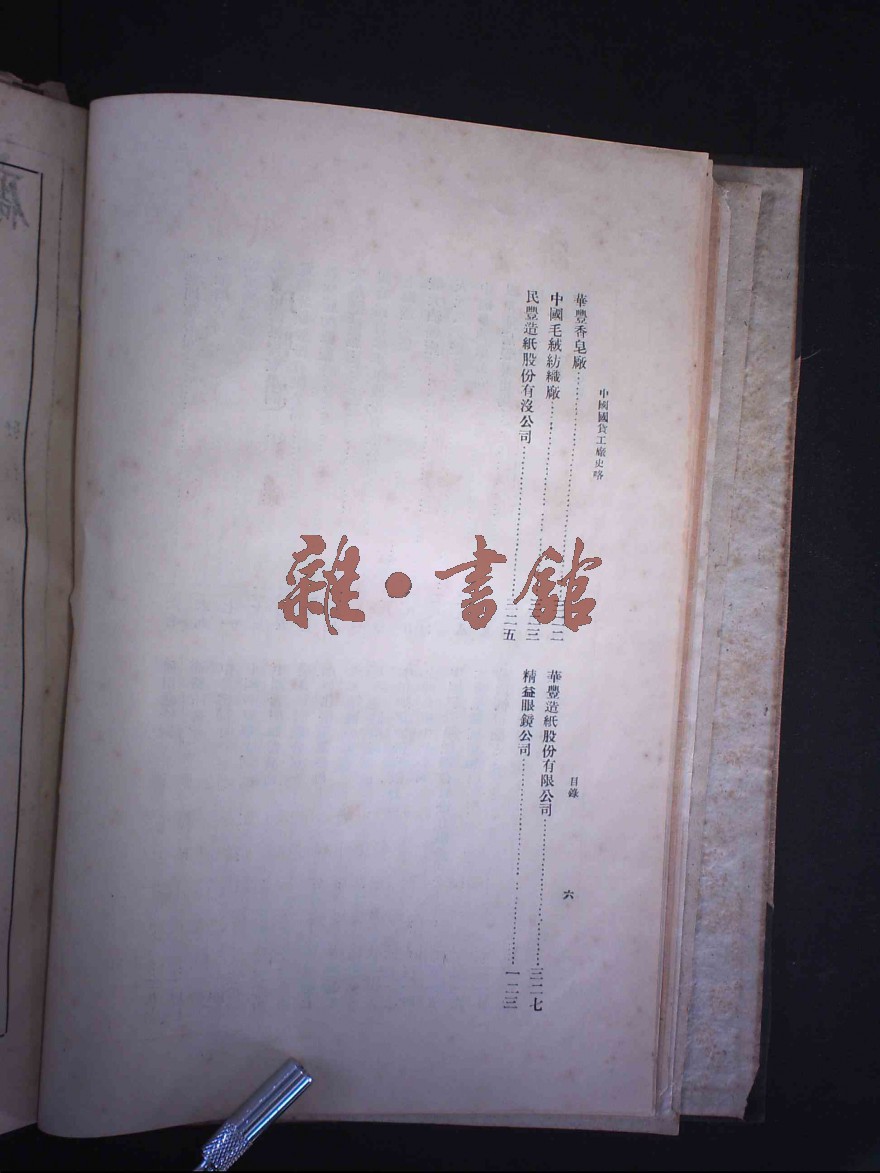 中國國貨工廠史略
目錄
六
華豐香皂廠
中國毛絨紡織廠
民豐造紙股份有沒公司
二五
華豐造紙股份有限公司
三二七
精益眼鏡公司
一二三
雜·書館